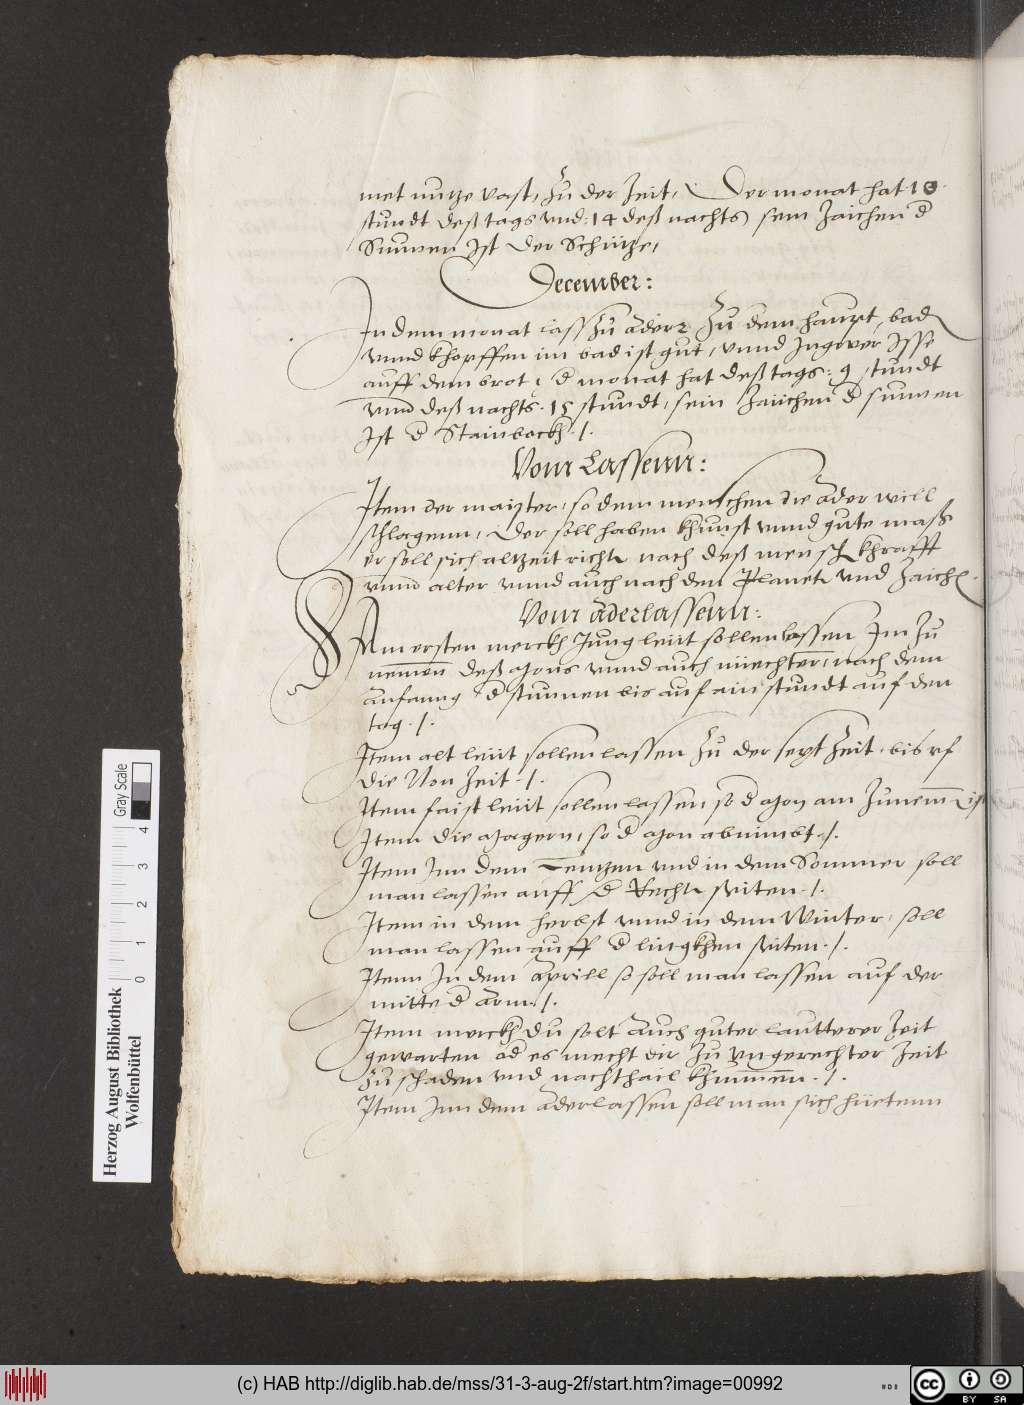 met nutze vast, Zu der Zeit, Der monat hat 10
stundt deß tags vnd: 14 deß nachts sein Zaichen d
Sunnen Ist der Schütze,
December:
In dem monat lass Zu ader Zu dem haupt, bad
vnnd khopffen im bad ist gut, vnnd Ingwer Isse
auff dem brot, d monat hat deß tags: 9 stundt
vnd deß nachts. 15 stundt, sein Zaiichen d sunnen
Ist d Stainbockh ./.
Vom Lassenn:
Item der maister, so dem menschen die ader will
schlagenn, Der soll haben khunst vnnd gute maß
er soll sich altzeit richtn nach deß mensch khrafft
vnnd alter vnnd auch nach den Planetn vnd Zaichen.
Vom aderlassenn:
Am ersten merckh Jung leüt sollen lassen Im Zu
nemmenn deß mons vnnd auch nüechtern, nach dem
anfanng d stunnen bis auf ain stundt auf den
tag ./.
Item alt leüt sollen lassen Zu der sext Zeit, bis vf
die Non Zeit ./.
Item faist leüt sollen lassen, so d mon am Zunemen ist
Item die magern, so d mon abnimbt ./.
Item Inn dem Lentzen vnd in dem Sommer soll
man lassen auff d Rechtn seiten ./.
Item in dem herbst vnnd in dem Winter, soll
man lassen auff d linngkhen seiten ./.
Item In dem aprill so soll man lassen auf der
mitte d arm ./.
Item merckh du solt auch guter lautterer Zeit
gewarten od es mecht dir Zu vngerechter Zeit
Zu schaden vnd nachthail khummen ./.
Item Inn dem aderlassen soll man sich hüetenn
Herzog August Bibliothek
Wolfenbüttel
Gray Scale
0 1 2 3 4
(c) HAB http://diglib.hab.de/mss/31-3-aug-2f/start.htm?image=00992
cc BY SA